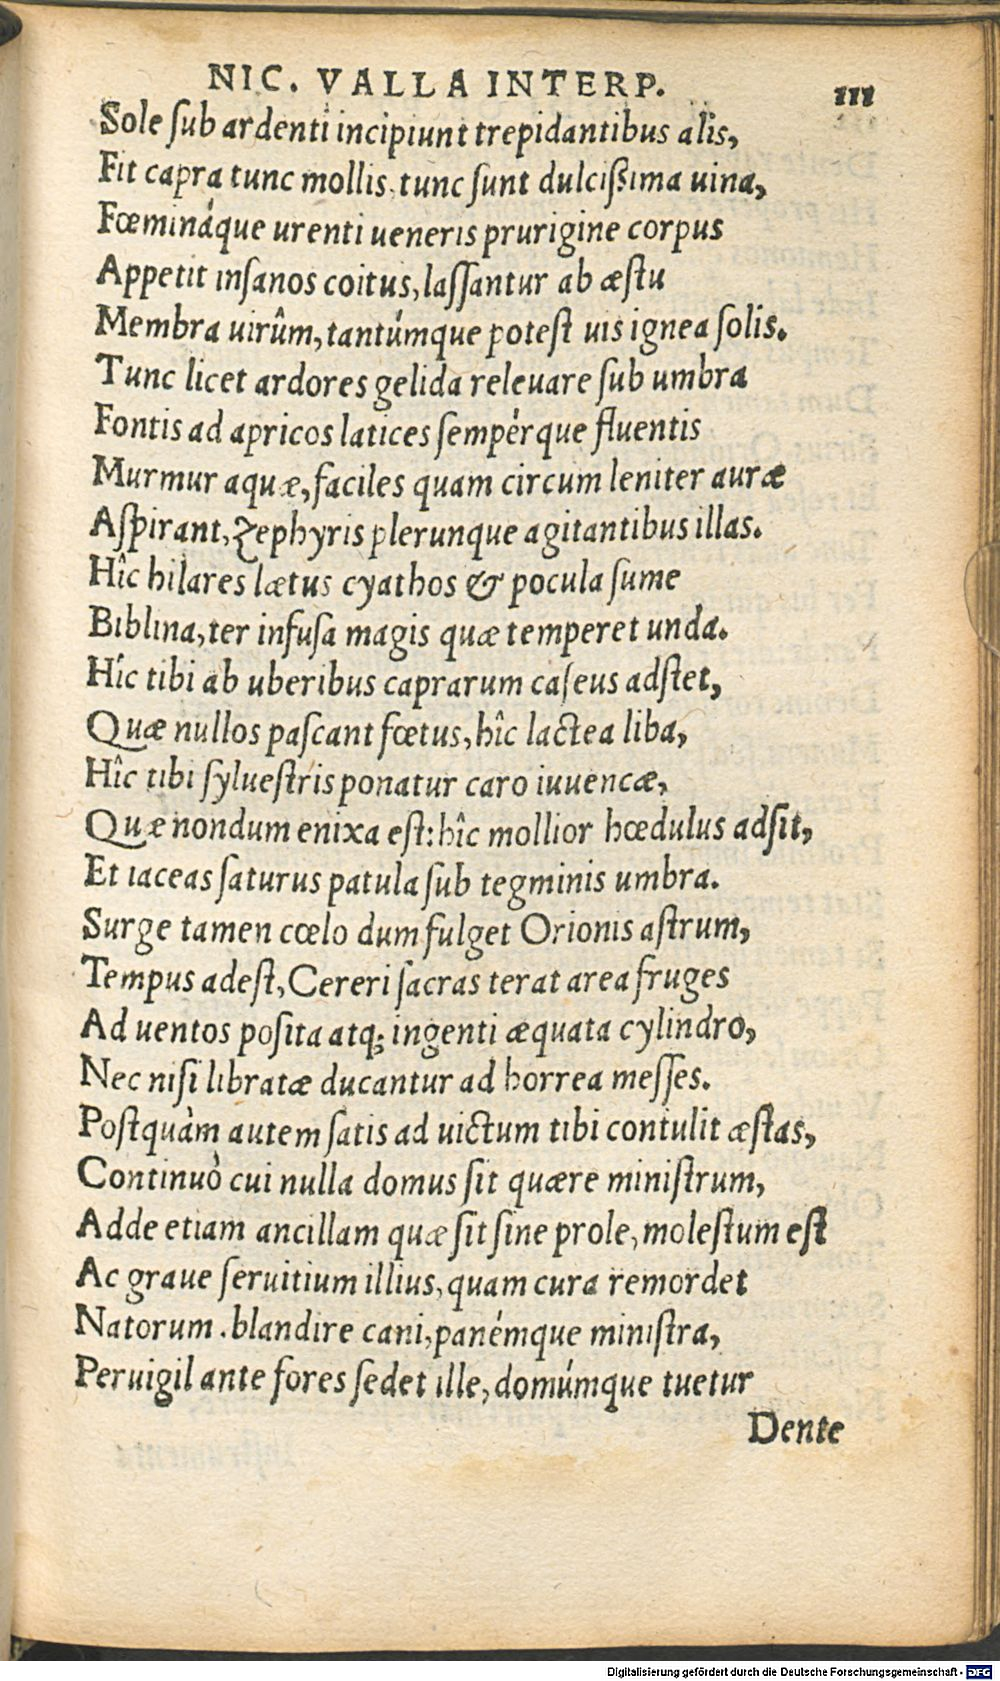 NIC. VALLA INTERP. 111
Sole ſub ardenti incipiunt trepidantibus alis,
Fit capra tunc mollis, tunc ſunt dulciſsima uina,
Fœmináque urenti ueneris prurigine corpus
Appetit inſanos coitus, laſſantur ab æſtu
Membra uirûm, tantúmque poteſt uis ignea ſolis.
Tunc licet ardores gelida releuare ſub umbra
Fontis ad apricos latices ſempérque fluentis
Murmur aquæ, faciles quam circum leniter auræ
Aſpirant, Zephyris plerunque agitantibus illas.
Hîc hilares lætus cyathos & pocula ſume
Biblina, ter infuſa magis quæ temperet unda.
Híc tibi ab uberibus caprarum caſeus adſtet,
Quæ nullos paſcant fœtus, hîc lactea liba,
Hîc tibi ſylueſtris ponatur caro iuuencæ,
Quæ nondum enixa eſt: hîc mollior hœdulus adſit,
Et iaceas ſaturus patula ſub tegminis umbra.
Surge tamen cœlo dum fulget Orionis aſtrum,
Tempus adeſt, Cereri ſacras terat area fruges
Ad uentos poſita atq; ingenti æquata cylindro,
Nec niſi libratæ ducantur ad horrea meſſes.
Poſtquàm autem ſatis ad uictum tibi contulit æſtas,
Continuò cui nulla domus ſit quære miniſtrum,
Adde etiam ancillam quæ ſit ſine prole, moleſtum eſt
Ac graue ſeruitium illius, quam cura remordet
Natorum. blandire cani, panémque miniſtra,
Peruigil ante fores ſedet ille, domúmque tuetur
Dente
Digitalisierung gefördert durch die Deutsche Forschungsgemeinschaft - DFG